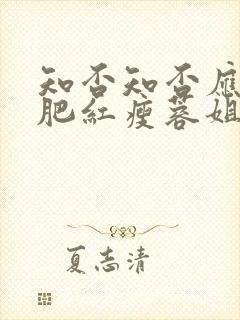 知否知否應
肥紅瘦蓉姐
夏志清